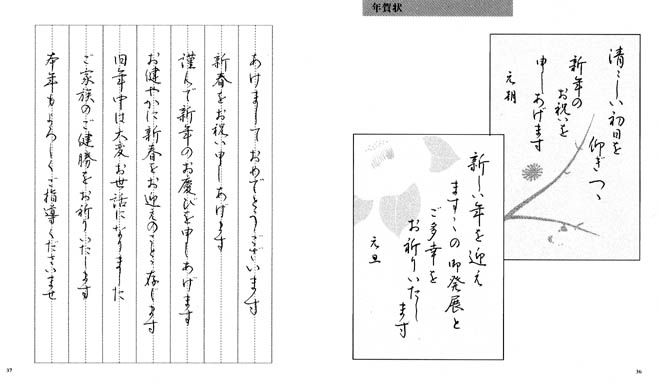 年賀状
清々しい初日を
仰ぎつゝ
新年の
お祝いを
申しあげます
元朝
新しい年を迎え
ますゝの御発展と
ご多幸を
お祈りいたし
ます
元旦
36
あけましておめでとうございます
新春をお祝い申しあげます
謹んで新年のお慶びを申しあげます
お健やかに新春をお迎えのことゝ存じます
旧年中は大変お世話になりました
ご家族のご健勝をお祈りいたします
本年もよろしくご指導くださいませ
37